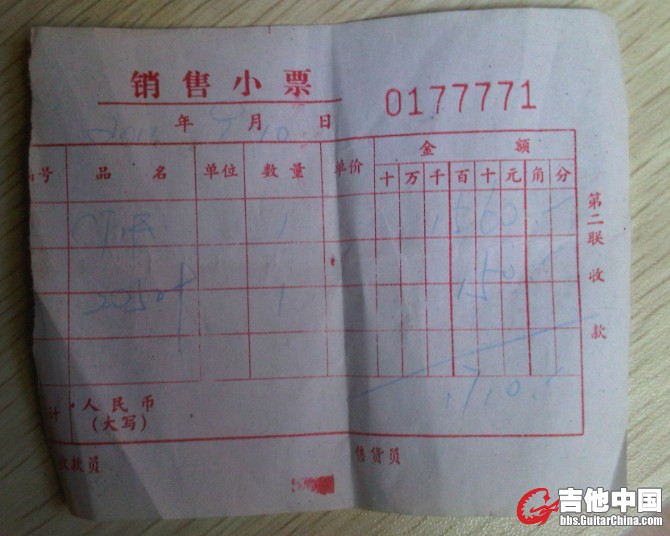 销售小票
0177771
年 月 10 日
号 品名 单位 数量 单价 金额
十 万 千 百 十 元 角 分
1 1560
1 150
1710
人民币
(大写)
收款员 售货员
第二联收款
吉他中国
bbs.GuitarChina.com